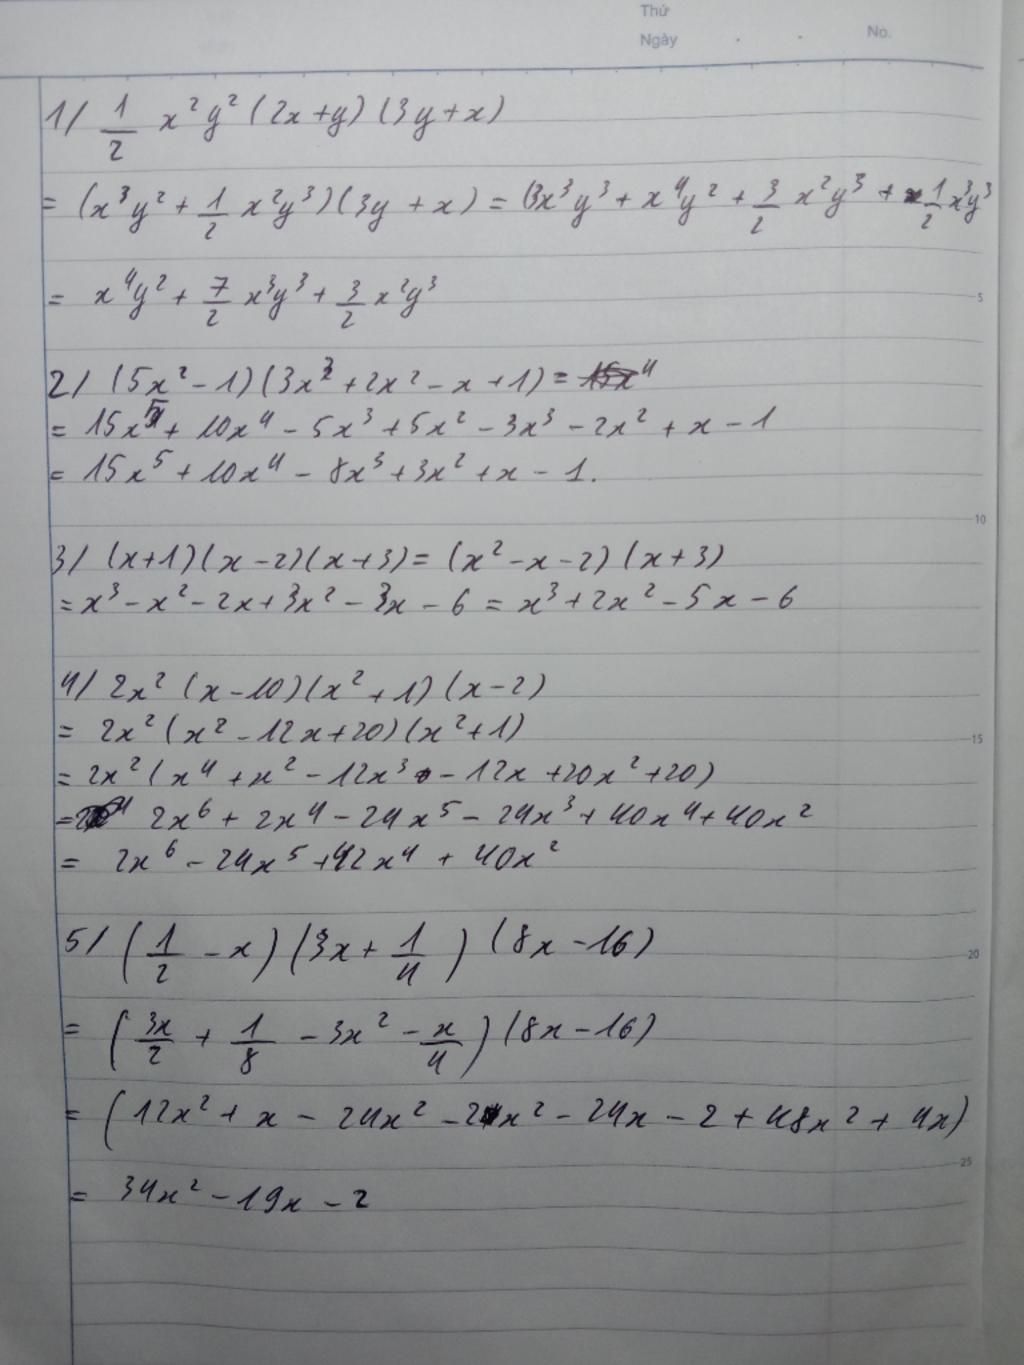 Thứ
Ngày . . No.
1/ 1/2 x²y² (2x+y) (3y+x)
= (x³y² + 1/2 x²y³)(3y + x) = (3x³y³ + x⁴y² + 3/2 x²y³ + 1/2 x³y³
= x⁴y² + 7/2 x³y³ + 3/2 x²y³
5
2/ (5x² - 1)(3x³ + 2x² - x + 1) = 15x⁴
= 15x⁵ + 10x⁴ - 5x³ + 5x² - 3x³ - 2x² + x - 1
= 15x⁵ + 10x⁴ - 8x³ + 3x² + x - 1.
10
3/ (x+1)(x-2)(x+3) = (x² - x - 2) (x+3)
= x³ - x² - 2x + 3x² - 3x - 6 = x³ + 2x² - 5x - 6
4/ 2x² (x-10)(x²+1)(x-2)
= 2x² (x² - 12x + 20)(x²+1)
15
= 2x² (x⁴ + x² - 12x³ - 12x + 20x² + 20)
= 2x⁶ + 2x⁴ - 24x⁵ - 24x³ + 40x⁴ + 40x²
= 2x⁶ - 24x⁵ + 42x⁴ + 40x²
5/ (1/2 - x) (3x + 1/4) (8x - 16)
20
= (3x/2 + 1/8 - 3x² - x/4) (8x - 16)
= (12x² + x - 24x² - 2x² - 24x - 2 + 48x² + 4x)
25
= 34x² - 19x - 2